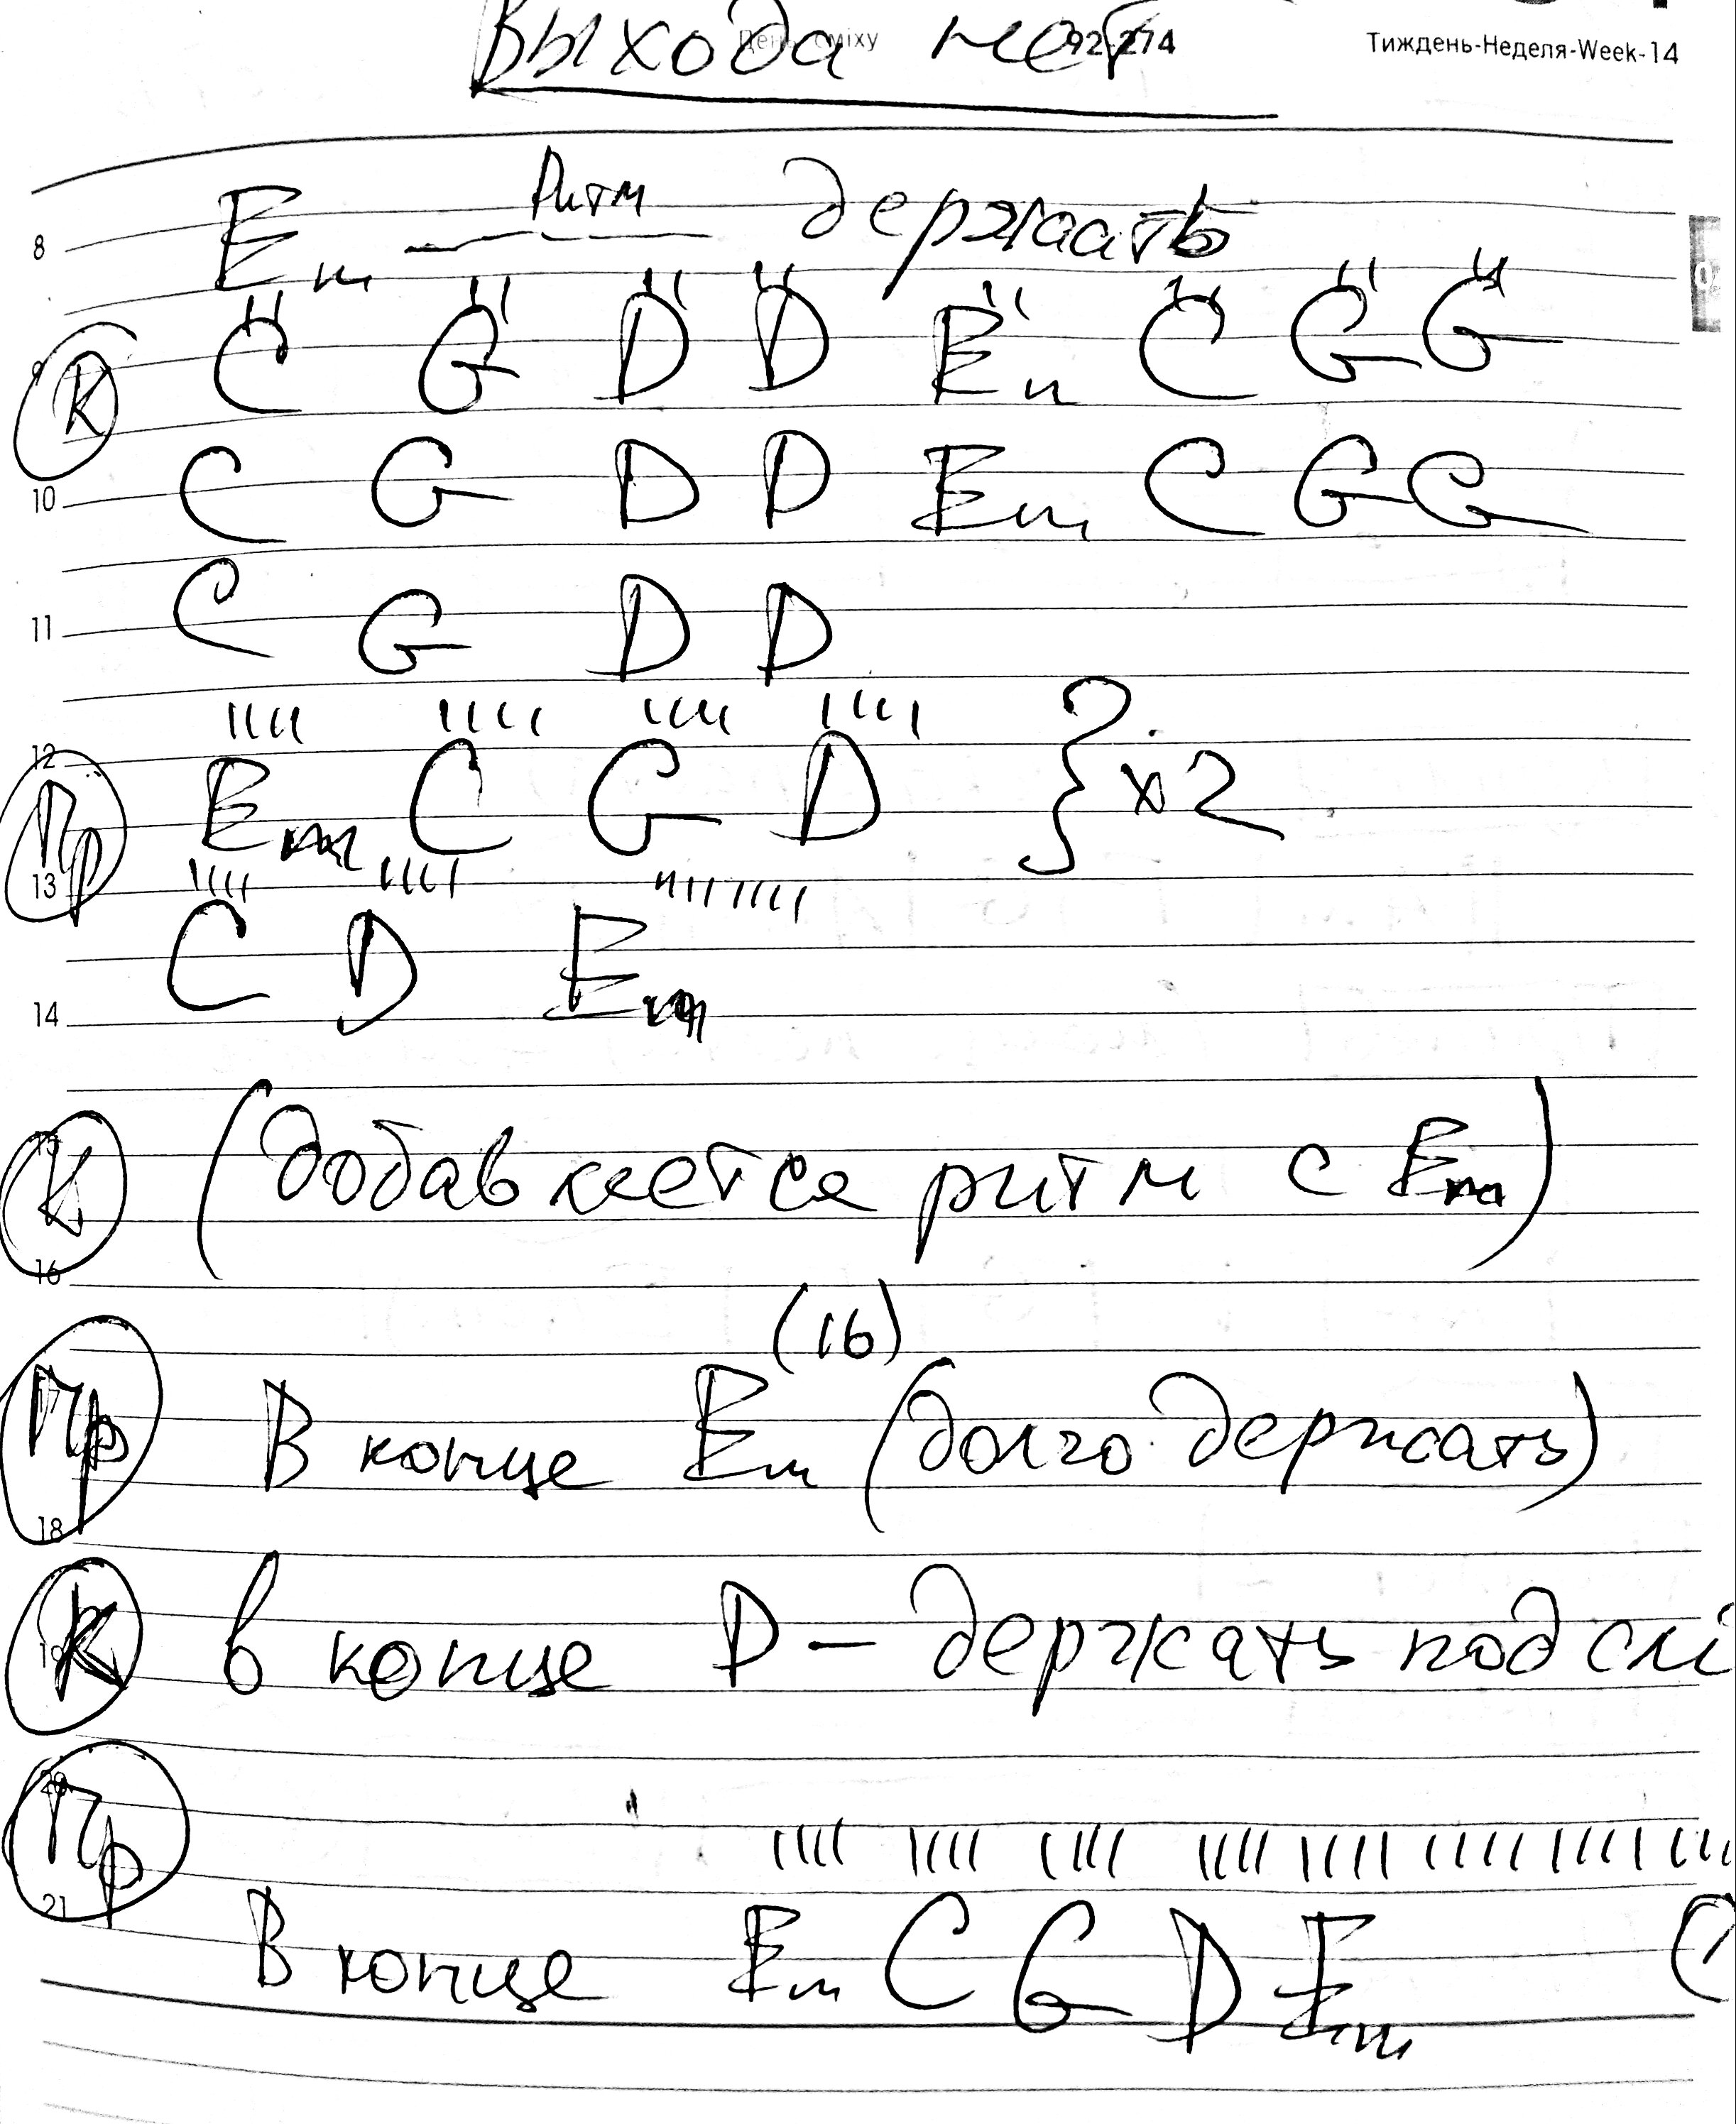 Выхода нет
День сміху 92-274 Тиждень-Неделя-Week-14
Ритм
8 Em — держать
'' '' '' '' '' '' '' ''
9 К C G D D Em C G G
10 C G D D Em C G G
11 C G D D
'''' '''' '''' ''''
12 Пр Em C G D } x2
13 '''' '''' ''''''''
C D Em
14
15 К (добавляется ритм с Em)
16
(16)
17 Пр В конце Em (долго держать)
18
19 К в конце D – держать под
20 Пр
'''' '''' '''' '''' '''' '''' '''' ''''
21 В конце Em C G D Em